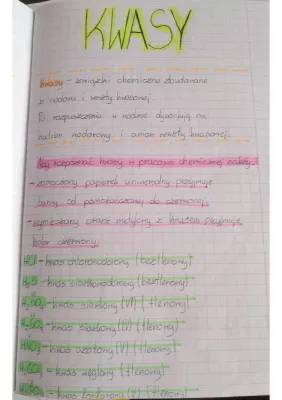 KWASY
Kwasy - związki chemiczne zbudowane
z wodoru i reszty kwasowej.
Po rozpuszczeniu w wodzie dysocjują na
kation wodorowy i anion reszty kwasowej.
Aby rozpoznać kwasy w pracowni chemicznej należy:
- zamoczony papierek uniwersalny przyjmuje
barwę od pomarańczowej do czerwonej.
- wymieszany oranż metylowy z kwasem przyjmuje
kolor czerwony.
HCl - kwas chlorowodorowy (beztlenowy)
H2S - kwas siarkowodorowy (beztlenowy)
H2SO4 - kwas siarkowy (VI) (tlenowy)
H2SO3 - kwas siarkowy (IV) (tlenowy)
HNO3 - kwas azotowy (V) (tlenowy)
H2CO3 - kwas węglowy (tlenowy)
H3PO4 - kwas fosforowy (V) (tlenowy)